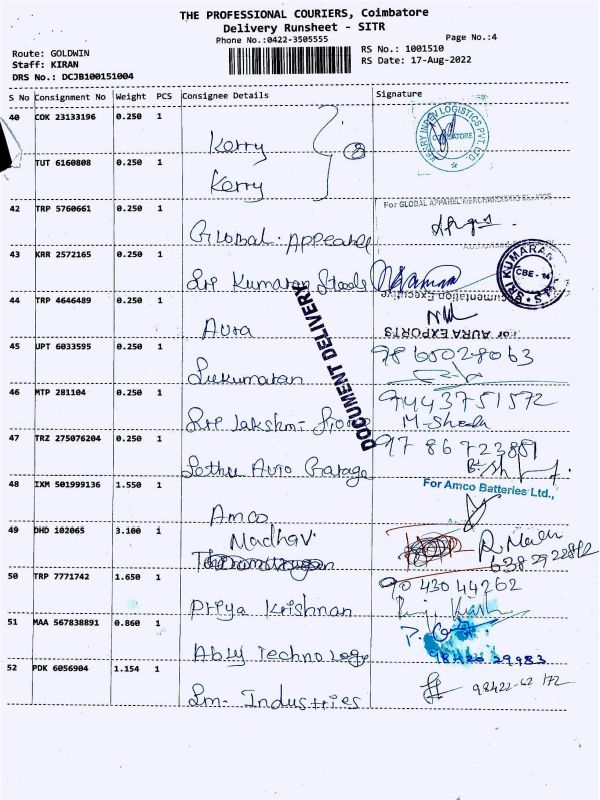 THE PROFESSIONAL COURIERS, Coimbatore
Delivery Runsheet - SITR
Phone No.:0422-3505555
Page No.:4
Route: GOLDWIN
Staff: KIRAN
DRS No.: DCJB100151004
RS No.: 1001510
RS Date: 17-Aug-2022
S No Consignment No Weight PCS Consignee Details Signature
40 COK 23133196 0.250 1
Kerry
KERRY INDEV LOGISTICS PVT. LTD.
COIMBATORE
TUT 6160808 0.250 1
Kerry
42 TRP 5760661 0.250 1
Global Appearel
For GLOBAL APPAREL MERCHANDISING SERVICE
43 KRR 2572165 0.250 1
Sri Kumaran Steels
SRI KUMARAN
CBE - 14
44 TRP 4646489 0.250 1
Aura
Documentation Executive
For AURA EXPORTS
DOCUMENT DELIVERY
45 UPT 6033595 0.250 1
Sukumaran
9860028063
46 MTP 281104 0.250 1
Sri Lakshmi
9443751572
47 TRZ 275076204 0.250 1
Sethu Auto Garage
48 IXM 501999136 1.550 1
Amco
For Amco Batteries Ltd.,
49 DHD 102065 3.100 1
Madhav
50 TRP 7771742 1.650 1
Priya Krishnan
9043044262
51 MAA 567838891 0.860 1
Ably Technology
52 PDK 6056904 1.154 1
Sm- Industries
98422-62172